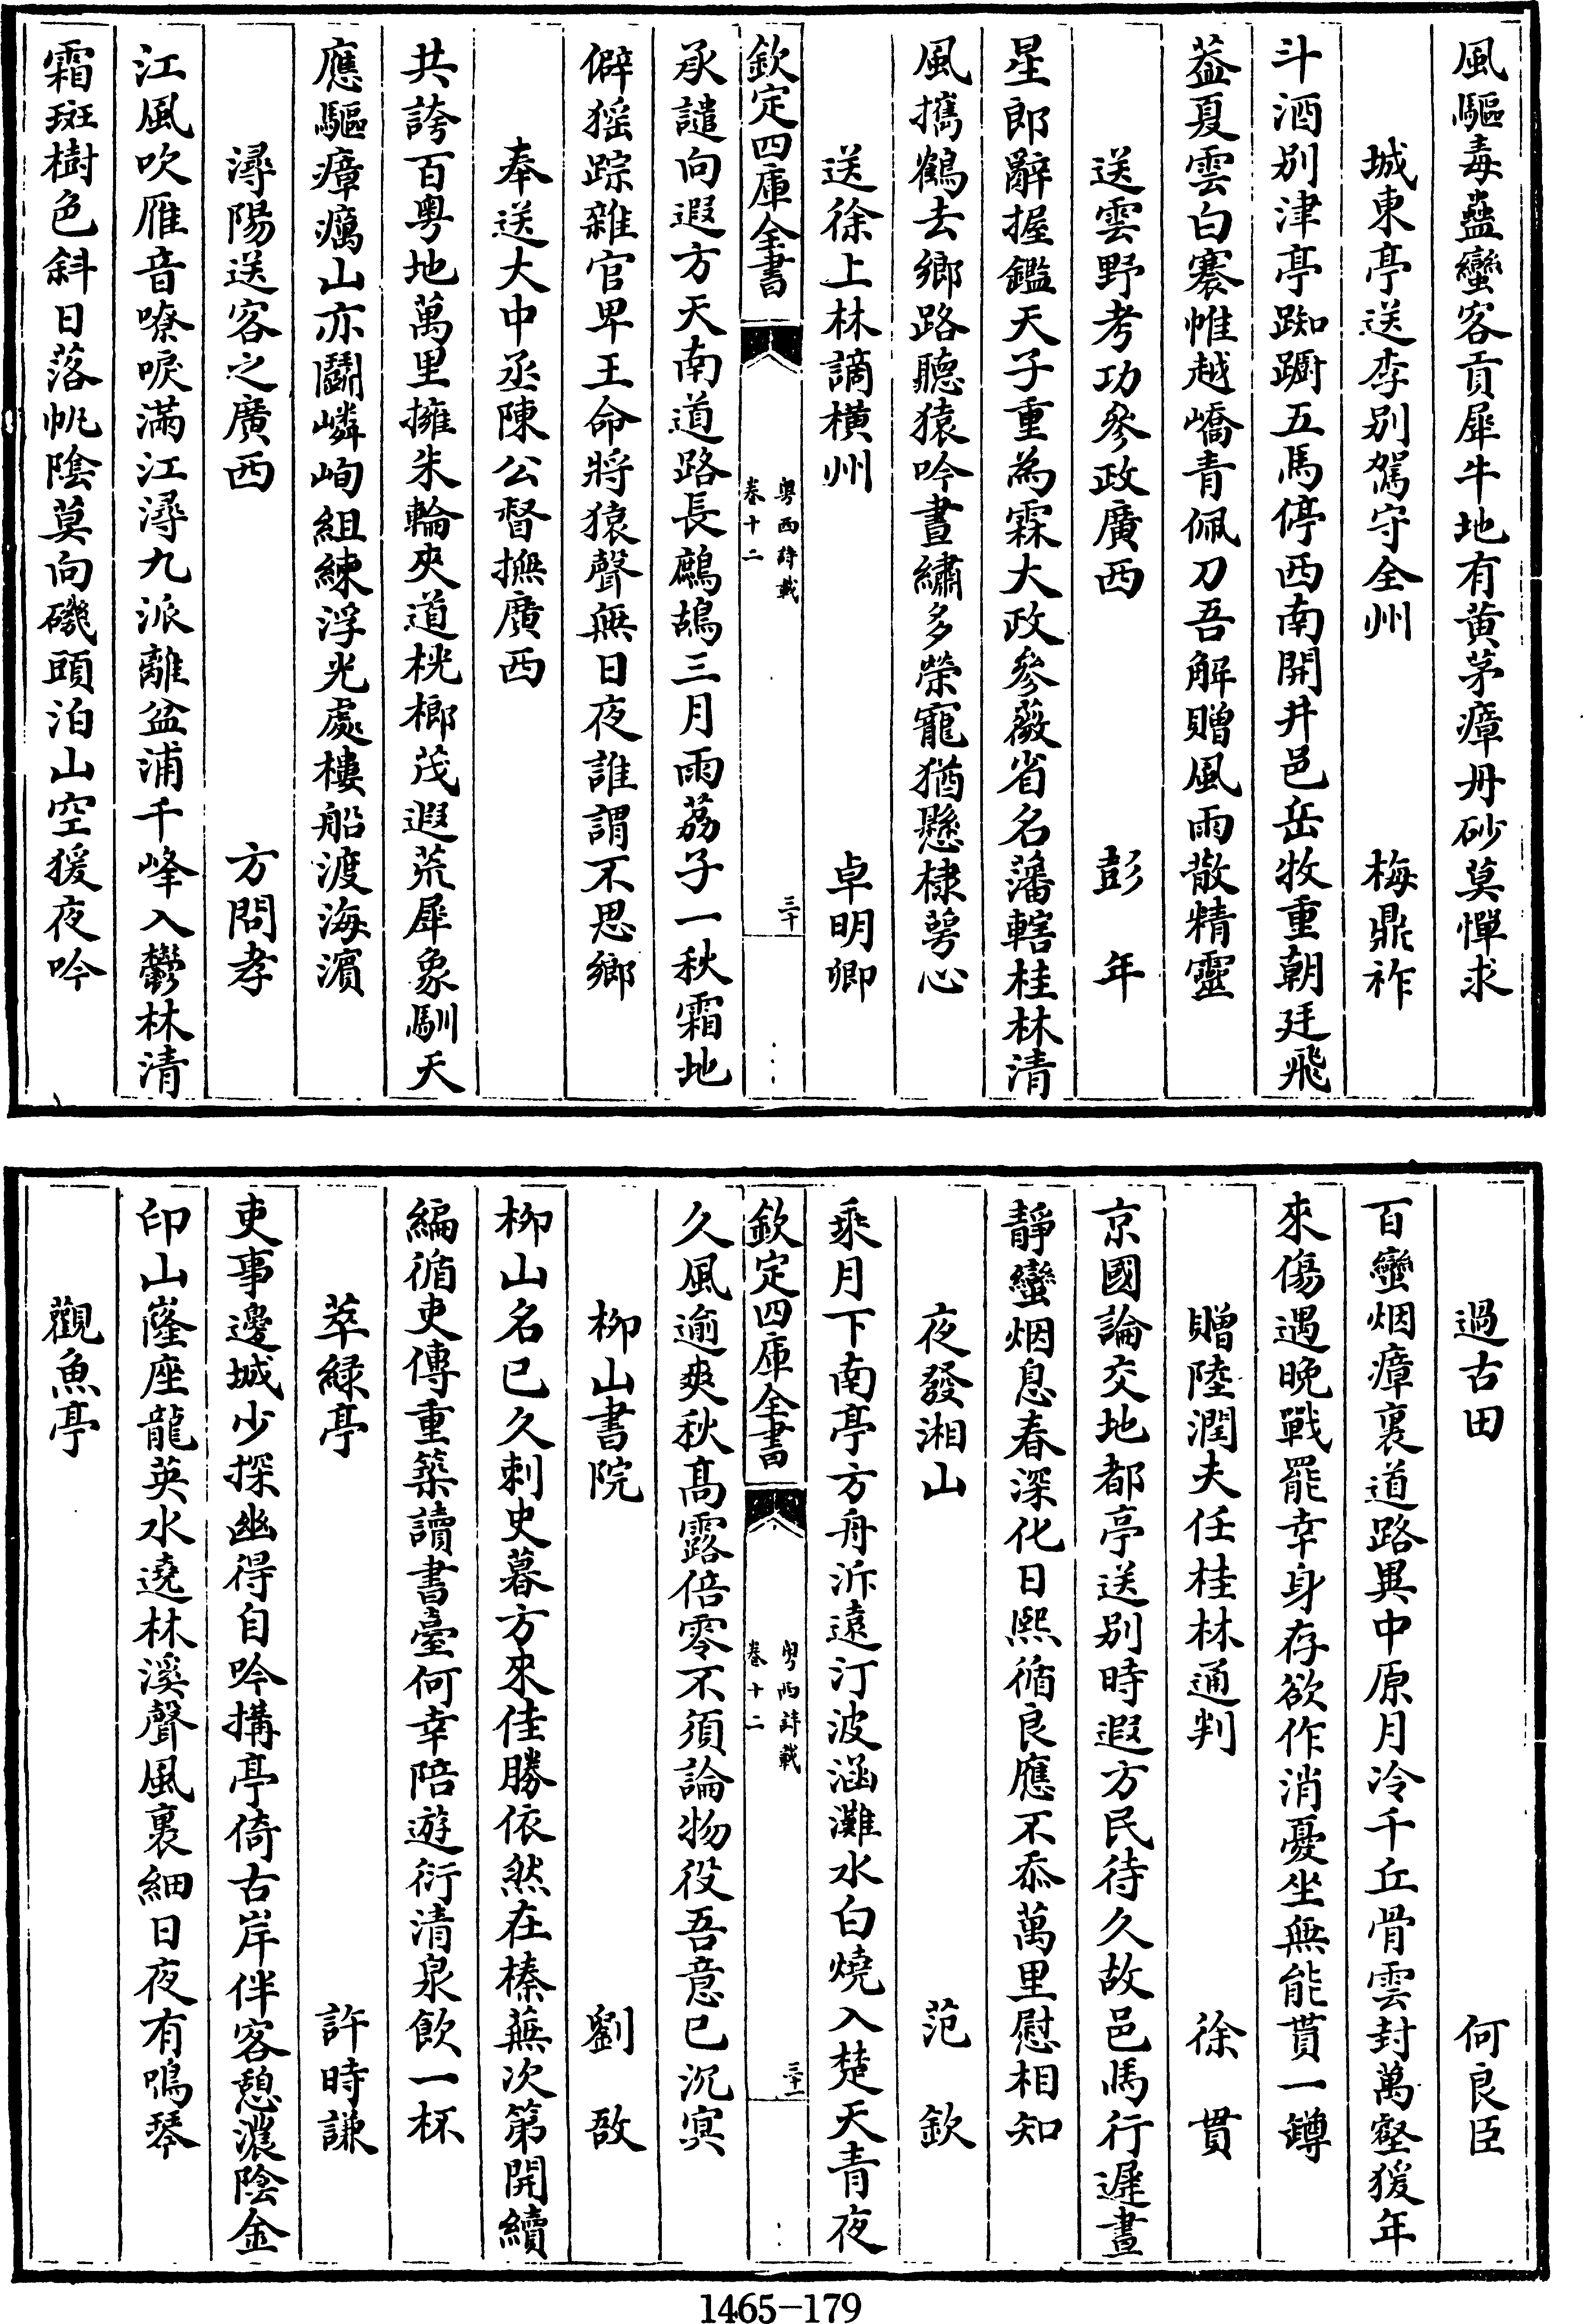 風驅毒蠱蠻客貢犀牛地有黄茅瘴丹砂莫憚求
城東亭送李别駕守全州 梅鼎祚
斗酒别津亭踟蹰五馬停西南開井邑岳牧重朝廷飛
葢夏雲白褰帷越嶠青佩刀吾解贈風雨散精靈
送雲野考功參政廣西 彭年
星郎辭握鑑天子重為霖大政參薇省名藩轄桂林清
風携鶴去鄉路聽猿吟晝繡多榮寵猶懸棣萼心
送徐上林謫横州 卓明卿
欽定四庫全書
粤西詩載
卷十二
三十
承譴向遐方天南道路長鷓鴣三月雨荔子一秋霜地
僻猺踪雜官卑王命將猿聲無日夜誰謂不思鄉
奉送大中丞陳公督撫廣西
共誇百粤地萬里擁朱輪夾道桄榔茂遐荒犀象馴天
應驅瘴癘山亦鬬嶙峋組練浮光處樓船渡海濱
潯陽送客之廣西 方問孝
江風吹雁音嘹唳滿江潯九派離盆浦千峰入鬱林清
霜斑樹色斜日落帆陰莫向磯頭泊山空猨夜吟
過古田 何良臣
百蠻烟瘴裏道路異中原月冷千丘骨雲封萬壑猨年
來傷遇晚戰罷幸身存欲作消憂坐無能貰一罇
贈陸潤夫任桂林通判 徐貫
京國論交地都亭送别時遐方民待久故邑馬行遲晝
靜蠻烟息春深化日熙循良應不忝萬里慰相知
夜發湘山 范欽
乘月下南亭方舟泝遠汀波涵灘水白燒入楚天青夜
欽定四庫全書
粤西詩載
卷十二
三十一
久風逾爽秋髙露倍零不須論物役吾意已沉㝠
栁山書院 劉敔
栁山名已久刺史暮方來佳勝依然在榛蕪次第開續
編循吏傳重築讀書臺何幸陪遊衍清泉飲一杯
萃緑亭 許時謙
吏事邊城少探幽得自吟搆亭倚古岸伴客憩濃陰金
印山窿座龍英水遶林溪聲風裏細日夜有鳴琴
觀魚亭
1465-179